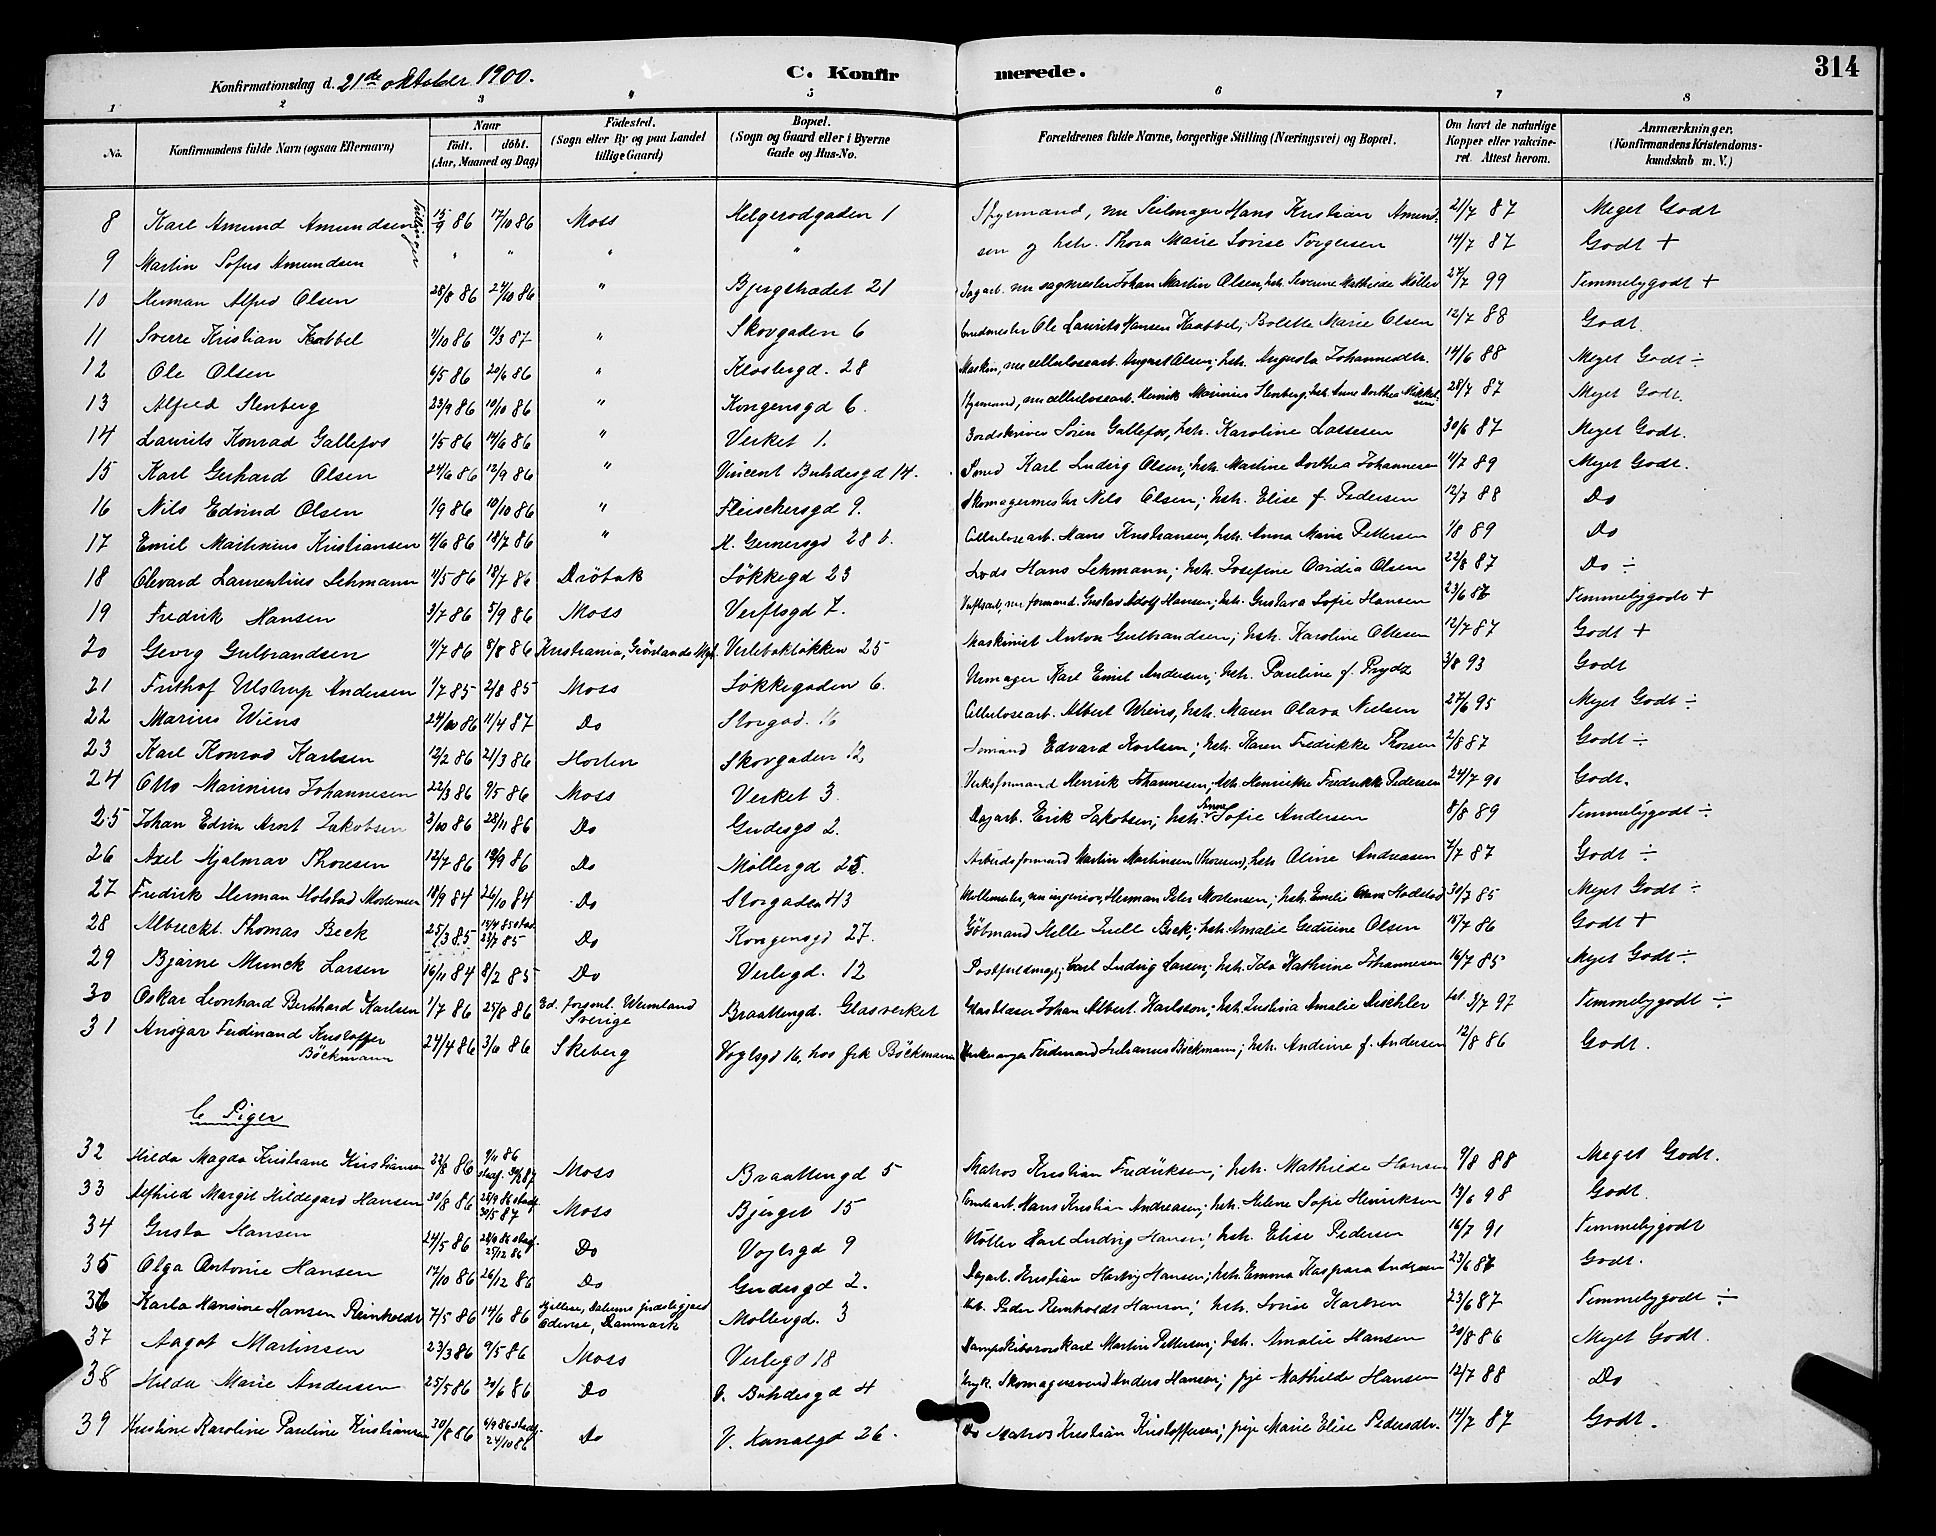 Konfirmationsdag d. 21de oktober 1900. C. Konfirmerede. 314
1 2 3 4 5 6 7 8
No. Konfirmandens fulde Navn (ogsaa Efternavn) Naar födt. döbt. (Aar, Maaned og Dag) Födested. (Sogn eller By og paa Landet tillige Gaard) Bopæl. (Sogn og Gaard eller i Byerne Gade og Hus-No. Forældrenes fulde Navne, borgerlige Stilling (Næringsvei) og Bopæl. Om havt de naturlige Kopper eller vakcineret. Attest herom. Anmærkninger. (Konfirmandens Kristendomskundskab m. V.)
8 Karl Amund Amundsen Tvillinger 15/9 86 17/10 86 Moss Helgerødgaden 1 Styrmand, nu Seilmager Hans Kristian Amund- 21/7 87 Meget Godt
9 Martin Sofus Amundsen " " " " sen og hstr. Thora Marie Lovise Torgersen 14/7 87 Godt +
10 Herman Alfred Olsen 28/8 86 24/10 86 " Bjergstrædet 21 Dagarb. nu sagmester Johan Martin Olsen, hstr. Severine Mathilde Möller 27/7 99 Temmeligodt +
11 Sverre Kristian Kabbel 11/10 86 13/3 87 " Skovgaden 6 Ole Laurits Hansen Kabbel; Bolette Marie Olsen 12/7 88 Godt.
12 Ole Olsen 6/5 86 20/6 86 " Klostergd. 28 Maskin, nu cellulosearb. August Olsen; hstr. Augusta Johannesdtr. 14/6 88 Meget Godt ÷
13 Alfred Stenberg 23/9 86 10/10 86 " Kongensgd 6. Styrmand, nu cellulosearb. Henrik Marinius Stenberg, hstr. Anne Dorthea Mikkelsen 28/7 87 Meget Godt.
14 Laurits Konrad Gallefos 1/5 86 14/6 86 " Verket 1. Bordskriver Sören Gallefos, hstr. Karoline Lassesen 30/6 87 Meget Godt.
15 Karl Gerhard Olsen 24/6 86 12/9 86 " Vincent Buhdesgd 14. Smed Karl Ludvig Olsen; hstr. Martine Dorthea Johannesen 11/7 89 Meget Godt.
16 Nils Edvind Olsen 1/9 86 10/10 86 " Fleischersgd 9. Skomagermester Nils Olsen; hstr. Elise f. Pedersen 12/7 88 Do
17 Emil Martinius Kristiansen 4/6 86 18/7 86 " H. Gernersgd 28 b. Cellulosearb. Hans Kristiansen, hstr. Anna Marie Pettersen 1/8 89 Do
18 Olevard Laurentius Lehmann 11/5 86 18/7 86 Dröbak Løkkegd 23 Lods Hans Lehmann; hstr. Josefine Ovidia Olsen 22/8 87 Do ÷
19 Fredrik Hansen 3/7 86 5/9 86 Moss Verftsgd 7. Verftsarb, nu formand. Gustav Adolf Hansen; hstr. Gustava Sofie Hansen 23/6 87 Temmeligodt +
20 Georg Gulbrandsen 11/7 86 8/8 86 Kristiania, Grönlands Mgh. Verlebakløkken 25 Maskinist Anton Gulbrandsen; hstr. Karoline Ottesen 12/7 87 Godt +
21 Frithof Ulstrup Andersen 1/7 85 2/8 85 Moss Løkkegaden 6. Urmager Karl Emil Andersen; hstr. Pauline f. Prydz 3/8 93 Godt
22 Marius Wiens 24/10 86 11/4 87 Do Storgad. 16 Cellulosearb. Albert Wiens, hstr. Maren Olava Nielsen 27/6 95 Meget Godt ÷
23 Karl Konrad Karlsen 12/2 86 21/3 86 Horten Skovgaden 12 Sömand Edvard Karlsen; hstr. Karen Fredrikke Thorsen 2/8 87 Godt ÷
24 Otto Marinius Johannesen 22/3 86 9/5 86 Moss Verket 3. Verksformand Henrik Johannesen, hstr. Henrikke Fredrikke Pedersen 24/7 90 Godt.
25 Johan Edvin Arnt Jakobsen 3/10 86 28/11 86 Do Gudesgd 2. Dagarb. Erik Jakobsen; hstr. Anne Sofie Andersen 8/8 89 Temmeligodt ÷
26 Axel Hjalmar Thoresen 12/7 86 19/9 86 Do Möllergd 25. Arbeidsformand Martin Martinsen (Thoresen), hstr. Oline Andreasen 7/7 87 Godt ÷
27 Fredrik Herman Holstad Mortensen 18/9 84 26/10 84 Do Storgaden 43 Möllemester, nu ingeniör, Herman Peter Mortensen; hstr. Emilie Olava Hodstad 30/7 85 Meget Godt ÷
28 Albreckt Thomas Beck 25/3 85 15/4 85 stad. 23/7 85 Do Kongensgd 27. Göbmand Helle Juell Beck; hstr. Amalie Gedsine Olsen 15/7 86 Godt +
29 Bjarne Munck Larsen 16/11 84 8/2 85 Do Verlegd. 12 Carl Ludvig Larsen; hstr. Ida Kathrine Johannesen 16/7 85 Meget Godt ÷
30 Oskar Leonhard Bernhard Karlsen 1/7 86 25/8 86 Ed. forsml. Wermland Sverige Braattengd. Glasverket Glasblæser Johan Albert Karlsson; hstr. Justina Amalie Dischler 3/7 97 Temmeligodt ÷
31 Ansgar Ferdinand Kristoffer Böckmann 24/4 86 3/6 86 Skeberg Voglsgd 16, hos frk Böckmann Ferdinand Julianus Böckmann; hstr. Andrine f. Andersen 12/8 86 Godt.
b Piger
32 Hilda Magda Kristiane Kristiansen 22/8 86 9/11 86 Moss Braattengd 5 Matros Kristian Fredriksen; hstr. Mathilde Hansen 9/8 88 Meget Godt.
33 Alfhild Margit Hildegard Hansen 30/8 86 28/9 86 stadf. 30/5 87 Moss Bjerget 15 Hans Kristian Andreasen; hstr. Helene Sofie Henriksen 13/6 98 Godt.
34 Gusta Hansen 24/5 86 27/12 86 Do Voglsgd 9 Möller Karl Ludvig Hansen; hstr. Elise Pedersen 16/7 91 Temmeligodt
35 Olga Antonie Hansen 17/10 86 26/12 86 Do Gudesgd 2. Dagarb. Kristian Hartvig Hansen; hstr. Emma Kaspara Andersen 23/6 87 Godt.
36 Karla Hansine Hansen Reinholdt 7/5 86 14/6 86 Odense, Danmark Möllergd. 3 Arb. Peder Reinholdt Hansen; hstr. Lovise Karlsen 23/6 87 Temmeligodt ÷
37 Aagot Martinsen 23/3 86 9/5 86 Moss Verlegd 18 Martin Pettersen; hstr. Amalie Hansen 20/8 86 Meget Godt.
38 Hilda Marie Andersen 25/5 86 20/6 86 Do V. Buhdesgd 4 Ungk. Skomagersvend Anders Hansen; pige Mathilde Hansen 12/7 88 Do
39 Kristine Karoline Pauline Kristiansen 30/8 86 6/9 86 stadf. 24/10 86 Do V. Kanalgd 26. Do Matros Kristian Kristoffersen; pige Marie Elise Pedersdtr. 14/7 87 Godt.